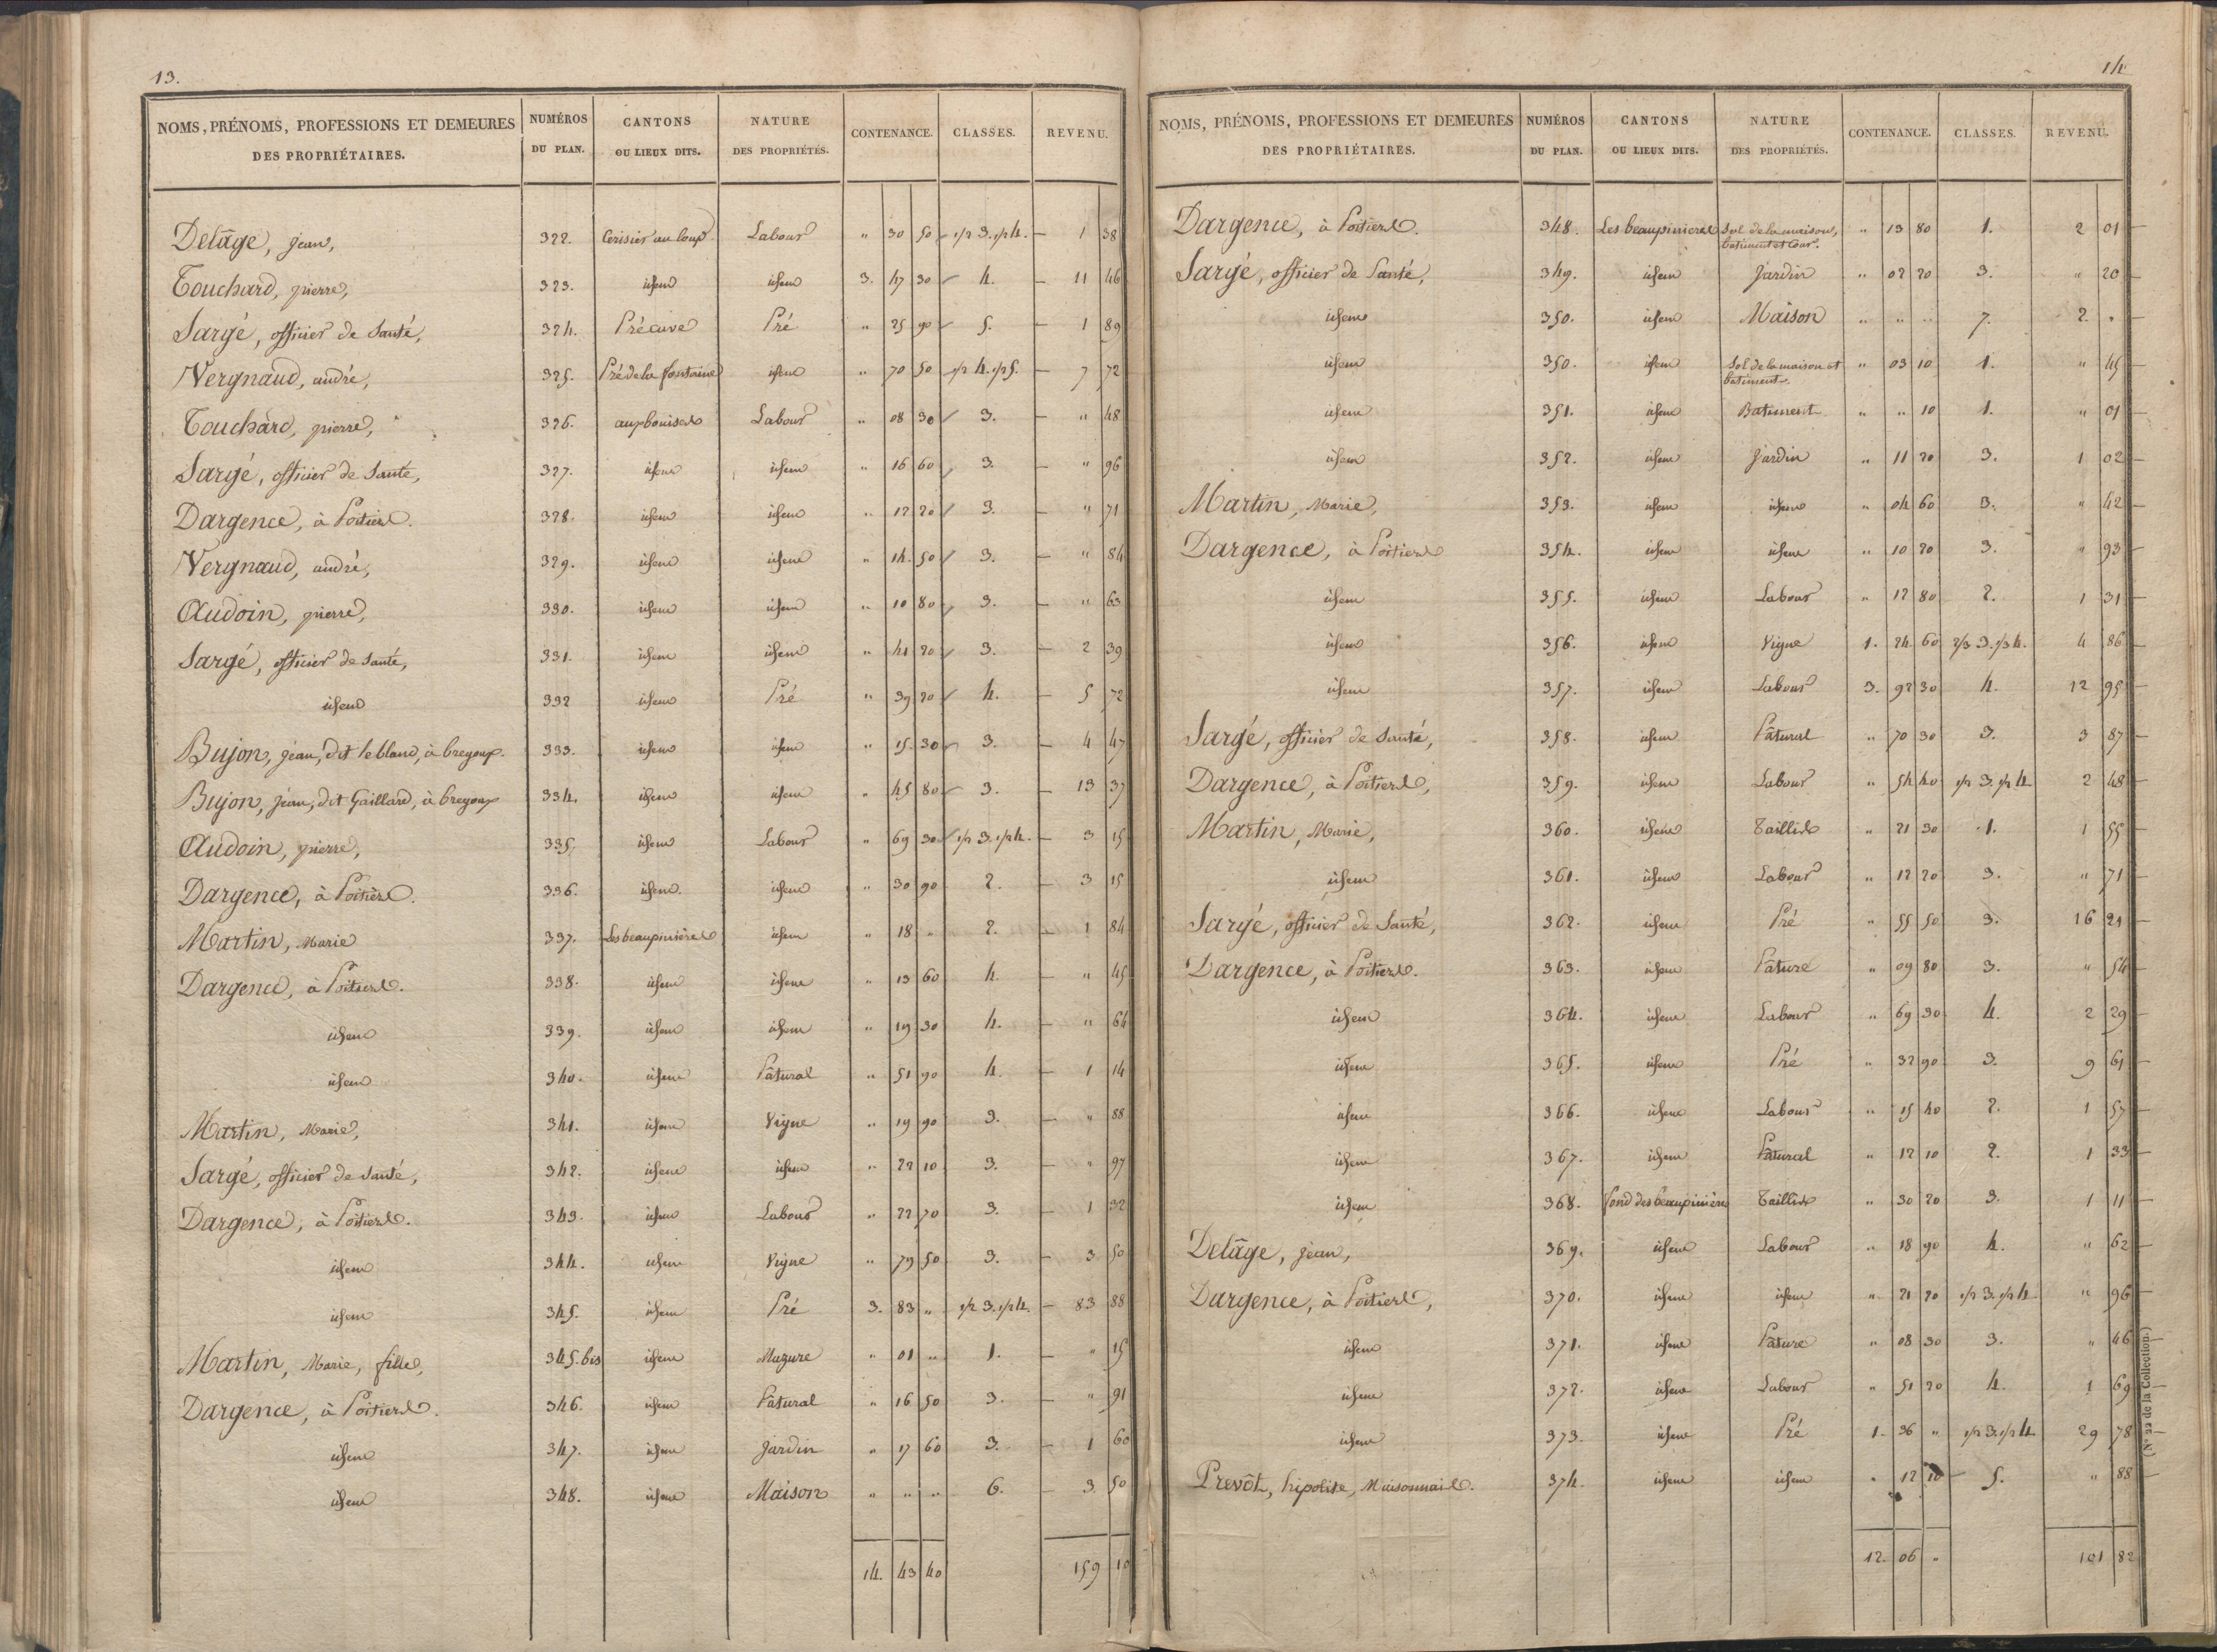 13.
NOMS, PRÉNOMS, PROFESSIONS ET DEMEURES DES PROPRIÉTAIRES. NUMÉROS DU PLAN. CANTONS OU LIEUX DITS. NATURE DES PROPRIÉTÉS. CONTENANCE. CLASSES. REVENU.
Delâge, jean, 322. Cerisier au loup Labour " 30 50 1/2 3. 1/2 4. 1 38
Touchard, pierre, 323. idem idem 3. 47 30 4. 11 46
Sargé, officier de Santé, 324. Précuve Pré " 25 90 5. 1 89
Vergnaud, andré, 325. Pré de la fontaine idem " 70 50 1/2 4. 1/2 5. 7 72
Touchard, pierre, 326. Labour " 08 30 3. " 48
Sargé, officier de Santé, 327. idem idem " 16 60 3. " 96
Dargence, à Poitiers. 328. idem idem " 12 20 3. " 71
Vergnaud, andré, 329. idem idem " 14. 50 3. " 84
Audoin, pierre, 330. idem idem " 10 80 3. " 63
Sargé, officier de Santé, 331. idem idem " 41 20 3. 2 39
idem 332 idem Pré " 39 20 4. 5 72
Bujon, jean, dit leblanc, à bregoux. 333. idem idem " 15. 30 3. 4 47
Bujon, jean, dit Gaillard, à bregoux 334. idem idem " 45 80 3. 13 37
Audoin, pierre, 335. idem Labour " 69 30 1/2 3. 1/2 4. 3 15
Dargence, à Poitiers. 336. idem. idem " 30 90 2. 3 15
Martin, Marie 337. Les beaupinières idem " 18 " 2. 1 84
Dargence, à Poitiers. 338. idem idem " 13 60 4. " 45
idem 339. idem idem " 19 30 4. " 64
idem 340. idem Pâtural " 51 90 4. 1 14
Martin, Marie, 341. idem Vigne " 19 90 3. " 88
Sargé, officier de Santé, 342. idem idem " 22 10 3. " 97
Dargence, à Poitiers. 343. idem Labour " 22 70 3. 1 32
idem 344. idem Vigne " 79 50 3. 3 50
idem 345. idem Pré 3. 83 " 1/2 3. 1/2 4. 83 88
Martin, Marie, fille, 345. bis idem Mazure " 01 " 1. " 15
Dargence, à Poitiers. 346. idem Pâtural " 16 50 3. " 91
idem 347. idem Jardin " 17 60 3. 1 60
idem 348. idem Maison " " " 6. 3 50
14. 43 40 159 10
14
NOMS, PRÉNOMS, PROFESSIONS ET DEMEURES DES PROPRIÉTAIRES. NUMÉROS DU PLAN. CANTONS OU LIEUX DITS. NATURE DES PROPRIÉTÉS. CONTENANCE. CLASSES. REVENU.
Dargence, à Poitiers. 348. Les beaupinieres Sol de la maison, batiment et Cour. " 13 80 1. 2 01
Sargé, officier de Santé, 349. idem Jardin " 02 20 3. " 20
idem 350. idem Maison " " " 7. 2 "
idem 350. idem Sol de la maison et batiment. " 03 10 1. " 45
idem 351. idem Batiment " " 10 1. " 01
idem 352. idem Jardin " 11 20 3. 1 02
Martin, Marie, 353. idem idem " 04 60 3. " 42
Dargence, à Poitiers 354. idem idem " 10 20 3. " 93
idem 355. idem Labour " 12 80 2. 1 31
idem 356. idem Vigne 1. 24 60 2/3 3. 1/3 4. 4 86
idem 357. idem Labour 3. 92 30 4. 12 95
Sargé, officier de Santé, 358. idem Pâtural " 70 30 3. 3 87
Dargence, à Poitiers, 359. idem Labour " 54 40 1/2 3. 1/2 4. 2 48
Martin, Marie, 360. idem Taillis " 21 30 1. 1 55
idem 361. idem Labour " 12 20 3. " 71
Sargé, officier de Santé, 362. idem Pré " 55 50 3. 16 21
Dargence, à Poitiers. 363. idem Pâture " 09 80 3. " 54
idem 364. idem Labour " 69 30 4. 2 29
idem 365. idem Pré " 32 90 3. 9 61
idem 366. idem Labour " 15 40 2. 1 57
idem 367. idem Pâtural " 12 10 2. 1 33
idem 368. fond des beaupinières Taillis " 30 20 3. 1 11
Delâge, jean, 369. idem Labour " 18 90 4. " 62
Dargence, à Poitiers, 370. idem idem " 21 20 1/2 3. 1/2 4. " 96
idem 371. idem Pâture " 08 30 3. " 46
idem 372. idem Labour " 51 20 4. 1 69
idem 373. idem Pré 1. 36 " 1/2 3. 1/2 4. 29 78
Prevôt, hipolite, Maisonnais. 374. idem idem " 12 10 5. " 88
12. 06 " 101 82
(N° 22 de la Collection.)